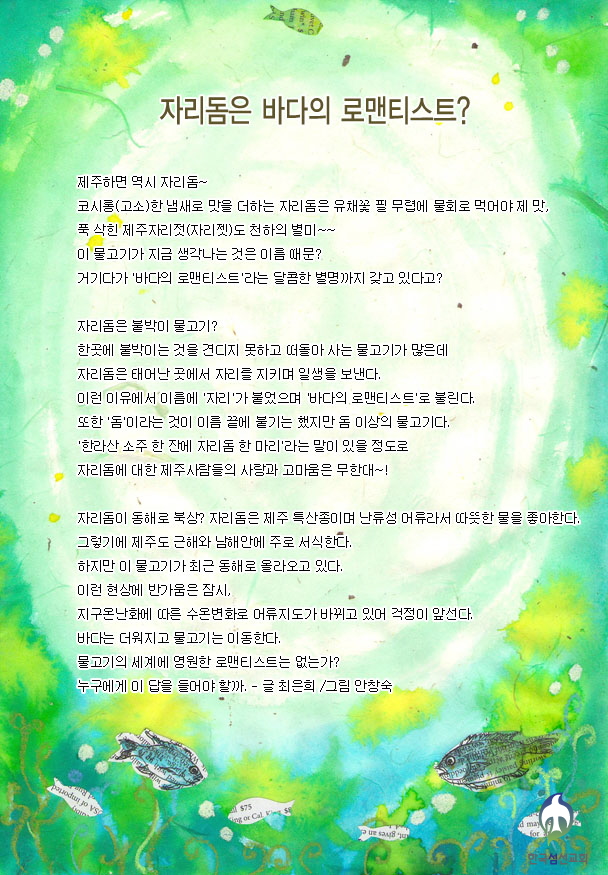 자리돔은 바다의 로맨티스트?
제주하면 역시 자리돔~
코시롱(고소)한 냄새로 맛을 더하는 자리돔은 유채꽃 필 무렵에 물회로 먹어야 제 맛,
푹 삭힌 제주자리젓(자리젯)도 천하의 별미~~
이 물고기가 지금 생각나는 것은 이름 때문?
거기다가 '바다의 로맨티스트'라는 달콤한 별명까지 갖고 있다고?
자리돔은 붙박이 물고기?
한곳에 붙박이는 것을 견디지 못하고 떠돌아 사는 물고기가 많은데
자리돔은 태어난 곳에서 자리를 지키며 일생을 보낸다.
이런 이유에서 이름에 '자리'가 붙었으며 '바다의 로맨티스트'로 불린다.
또한 '돔'이라는 것이 이름 끝에 붙기는 했지만 돔 이상의 물고기다.
'한라산 소주 한 잔에 자리돔 한 마리'라는 말이 있을 정도로
자리돔에 대한 제주사람들의 사랑과 고마움은 무한대~!
자리돔이 동해로 북상? 자리돔은 제주 특산종이며 난류성 어류라서 따뜻한 물을 좋아한다.
그렇기에 제주도 근해와 남해안에 주로 서식한다.
하지만 이 물고기가 최근 동해로 올라오고 있다.
이런 현상에 반가움은 잠시,
지구온난화에 따른 수온변화로 어류지도가 바뀌고 있어 걱정이 앞선다.
바다는 더워지고 물고기는 이동한다.
물고기의 세계에 영원한 로맨티스트는 없는가?
누구에게 이 답을 들어야 할까. - 글 최은희 /그림 안창숙
$75
ing or Cal. King
an
한국섬선교회